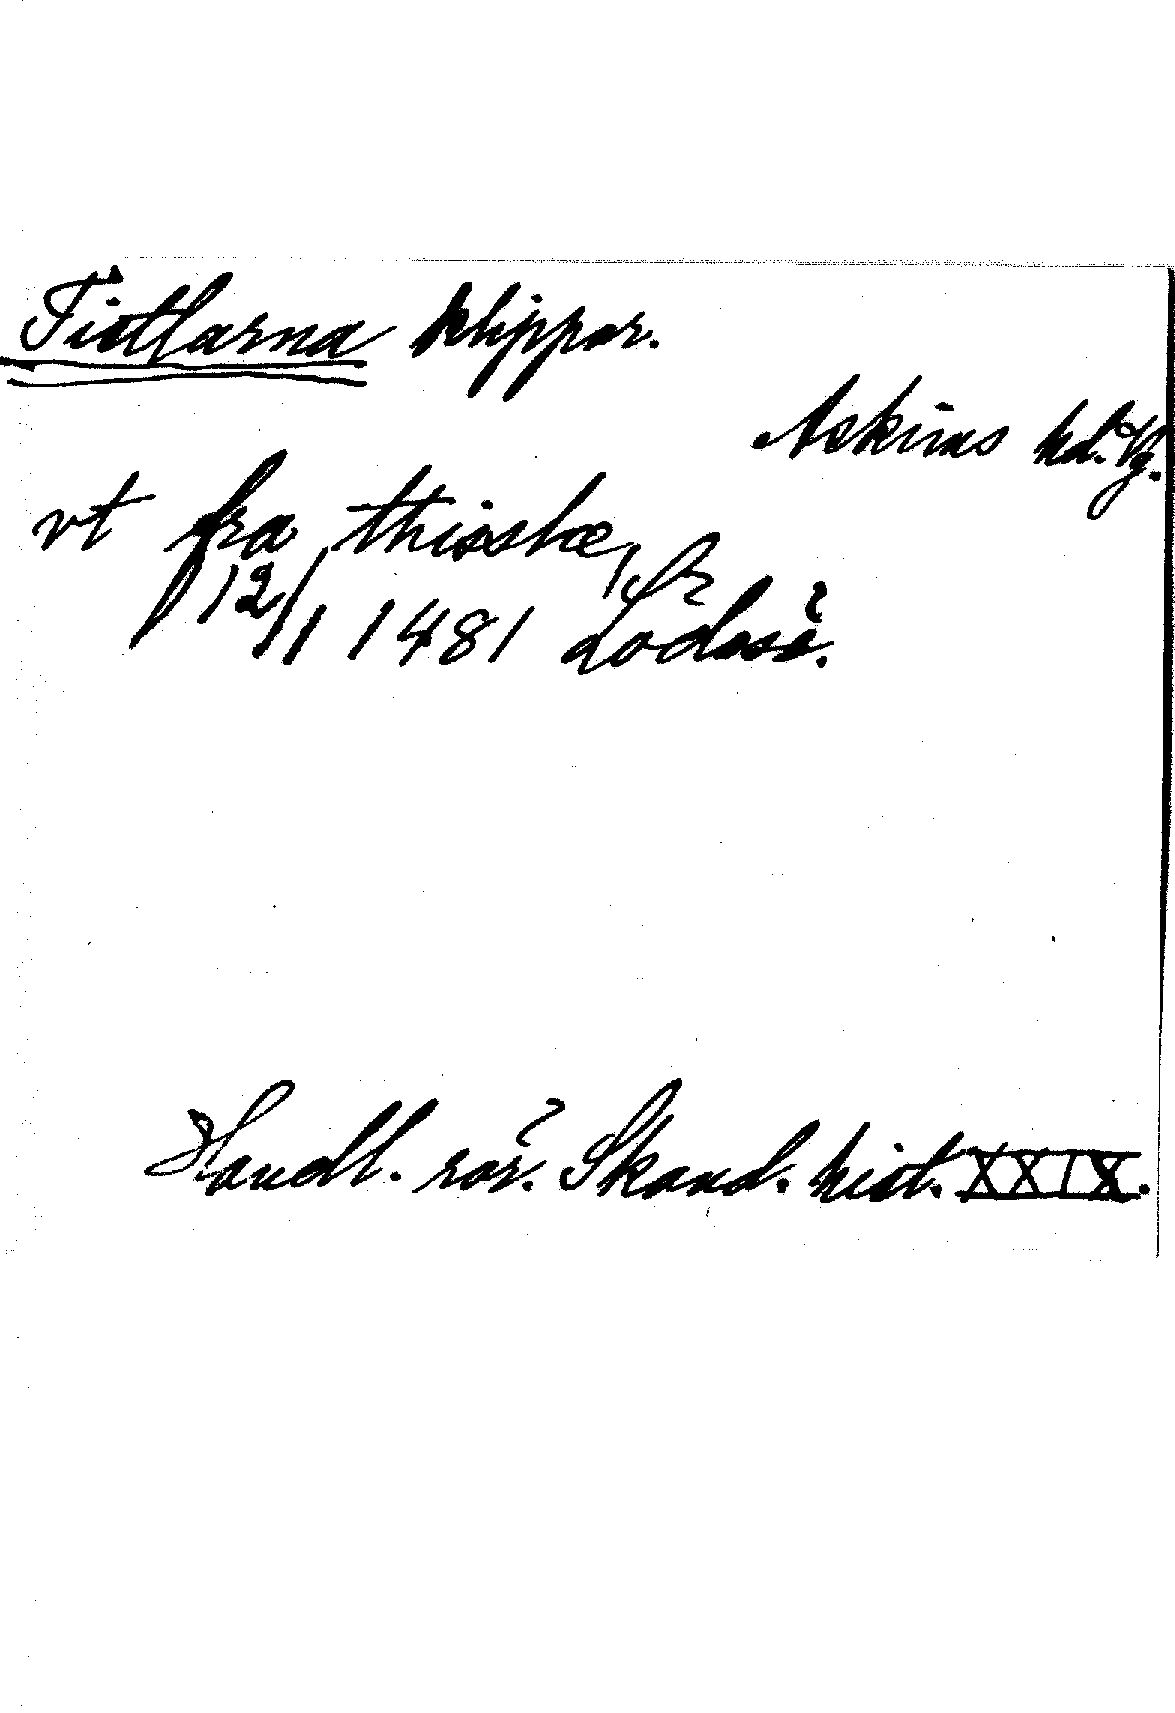 Tistlarna klippor.
Askims hd. Vg.
vt fra thisslæ,
12/1 1481 Lödöse.
Handl. rör. Skand. hist. XXIX.